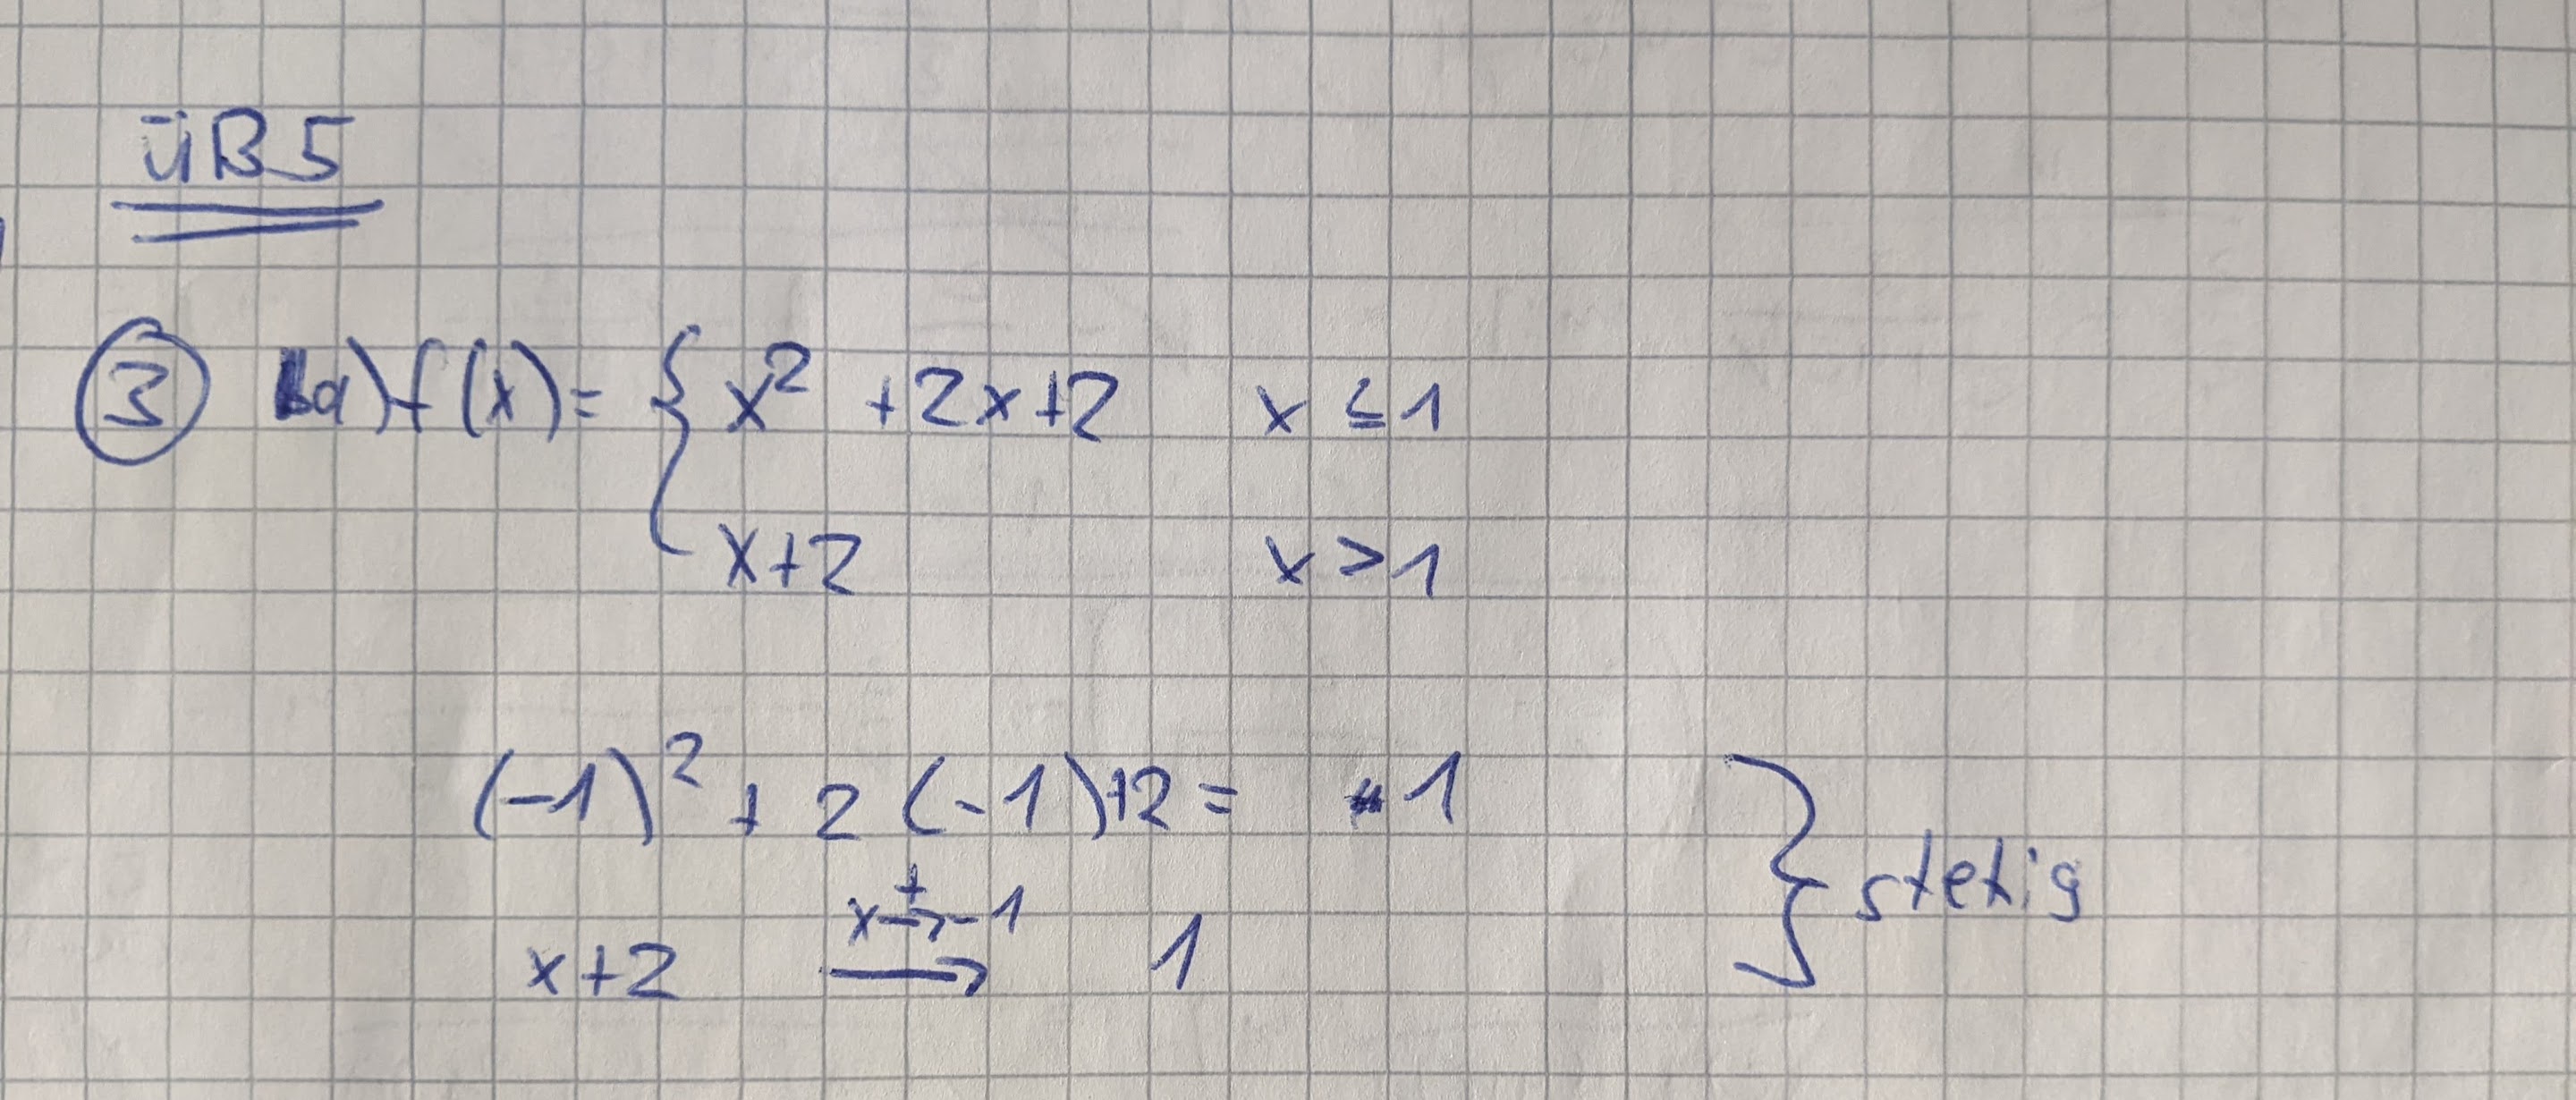 ÜB5
③ a) f(x) = { x² + 2x + 2 x ≤ 1
x + 2 x > 1
(-1)² + 2 (-1) + 2 = 1
x + 2 → 1 } stetig
x →⁺ -1